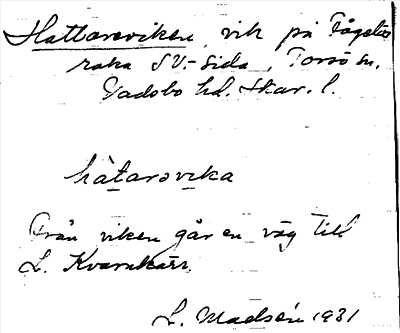 Hattareviken, vik på Fågelö
raka SV.-sida, Torsö sn.
Vadsbo hd. Skar. l.
hàtarəvika
Från viken går en väg till
L. Kvarnkärr.
L. Madsén 1931